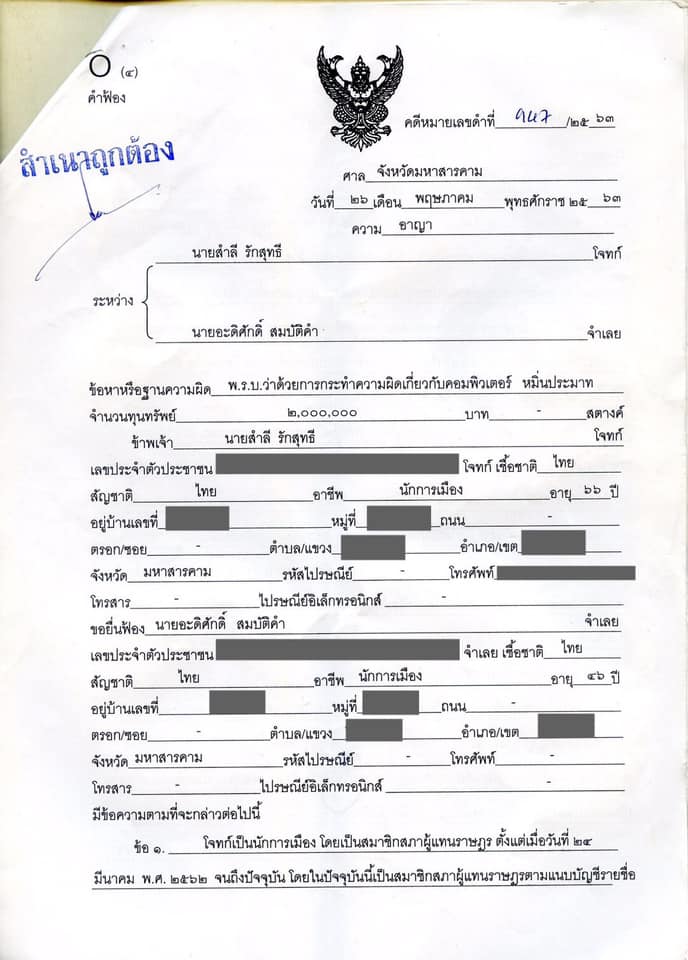 O (๔)
คำฟ้อง
สำเนาถูกต้อง
คดีหมายเลขดำที่ ๑๔๗ /๒๕ ๖๓
ศาล จังหวัดมหาสารคาม
วันที่ ๒๖ เดือน พฤษภาคม พุทธศักราช ๒๕ ๖๓
ความ อาญา
นายสำลี รักสุทธี โจทก์
ระหว่าง
นายอะดิศักดิ์ สมบัติคำ จำเลย
ข้อหาหรือฐานความผิด พ.ร.บ.ว่าด้วยการกระทำความผิดเกี่ยวกับคอมพิวเตอร์ หมิ่นประมาท
จำนวนทุนทรัพย์ ๒,๐๐๐,๐๐๐ บาท - สตางค์
ข้าพเจ้า นายสำลี รักสุทธี โจทก์
เลขประจำตัวประชาชน โจทก์ เชื้อชาติ ไทย
สัญชาติ ไทย อาชีพ นักการเมือง อายุ ๖๖ ปี
อยู่บ้านเลขที่ หมู่ที่ ถนน -
ตรอก/ซอย - ตำบล/แขวง อำเภอ/เขต
จังหวัด มหาสารคาม รหัสไปรษณีย์ - โทรศัพท์
โทรสาร - ไปรษณีย์อิเล็กทรอนิกส์ -
ขอยื่นฟ้อง นายอะดิศักดิ์ สมบัติคำ จำเลย
เลขประจำตัวประชาชน จำเลย เชื้อชาติ ไทย
สัญชาติ ไทย อาชีพ นักการเมือง อายุ ๔๖ ปี
อยู่บ้านเลขที่ หมู่ที่ ถนน -
ตรอก/ซอย - ตำบล/แขวง อำเภอ/เขต
จังหวัด มหาสารคาม รหัสไปรษณีย์ - โทรศัพท์ -
โทรสาร - ไปรษณีย์อิเล็กทรอนิกส์ -
มีข้อความตามที่จะกล่าวต่อไปนี้
ข้อ ๑. โจทก์เป็นนักการเมือง โดยเป็นสมาชิกสภาผู้แทนราษฎร ตั้งแต่เมื่อวันที่ ๒๔
มีนาคม พ.ศ. ๒๕๖๒ จนถึงปัจจุบัน โดยในปัจจุบันนี้เป็นสมาชิกสภาผู้แทนราษฎรตามแนบบัญชีรายชื่อ